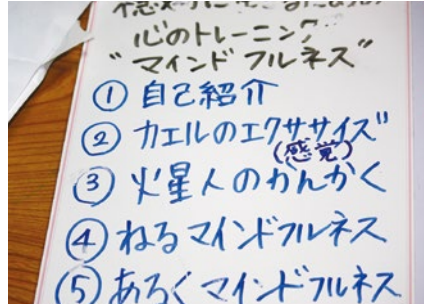 心のトレーニング
"マインドフルネス"
① 自己紹介
② カエルのエクササイズ
(感覚)
③ 火星人のかんかく
④ ねるマインドフルネス
⑤ あるくマインドフルネス